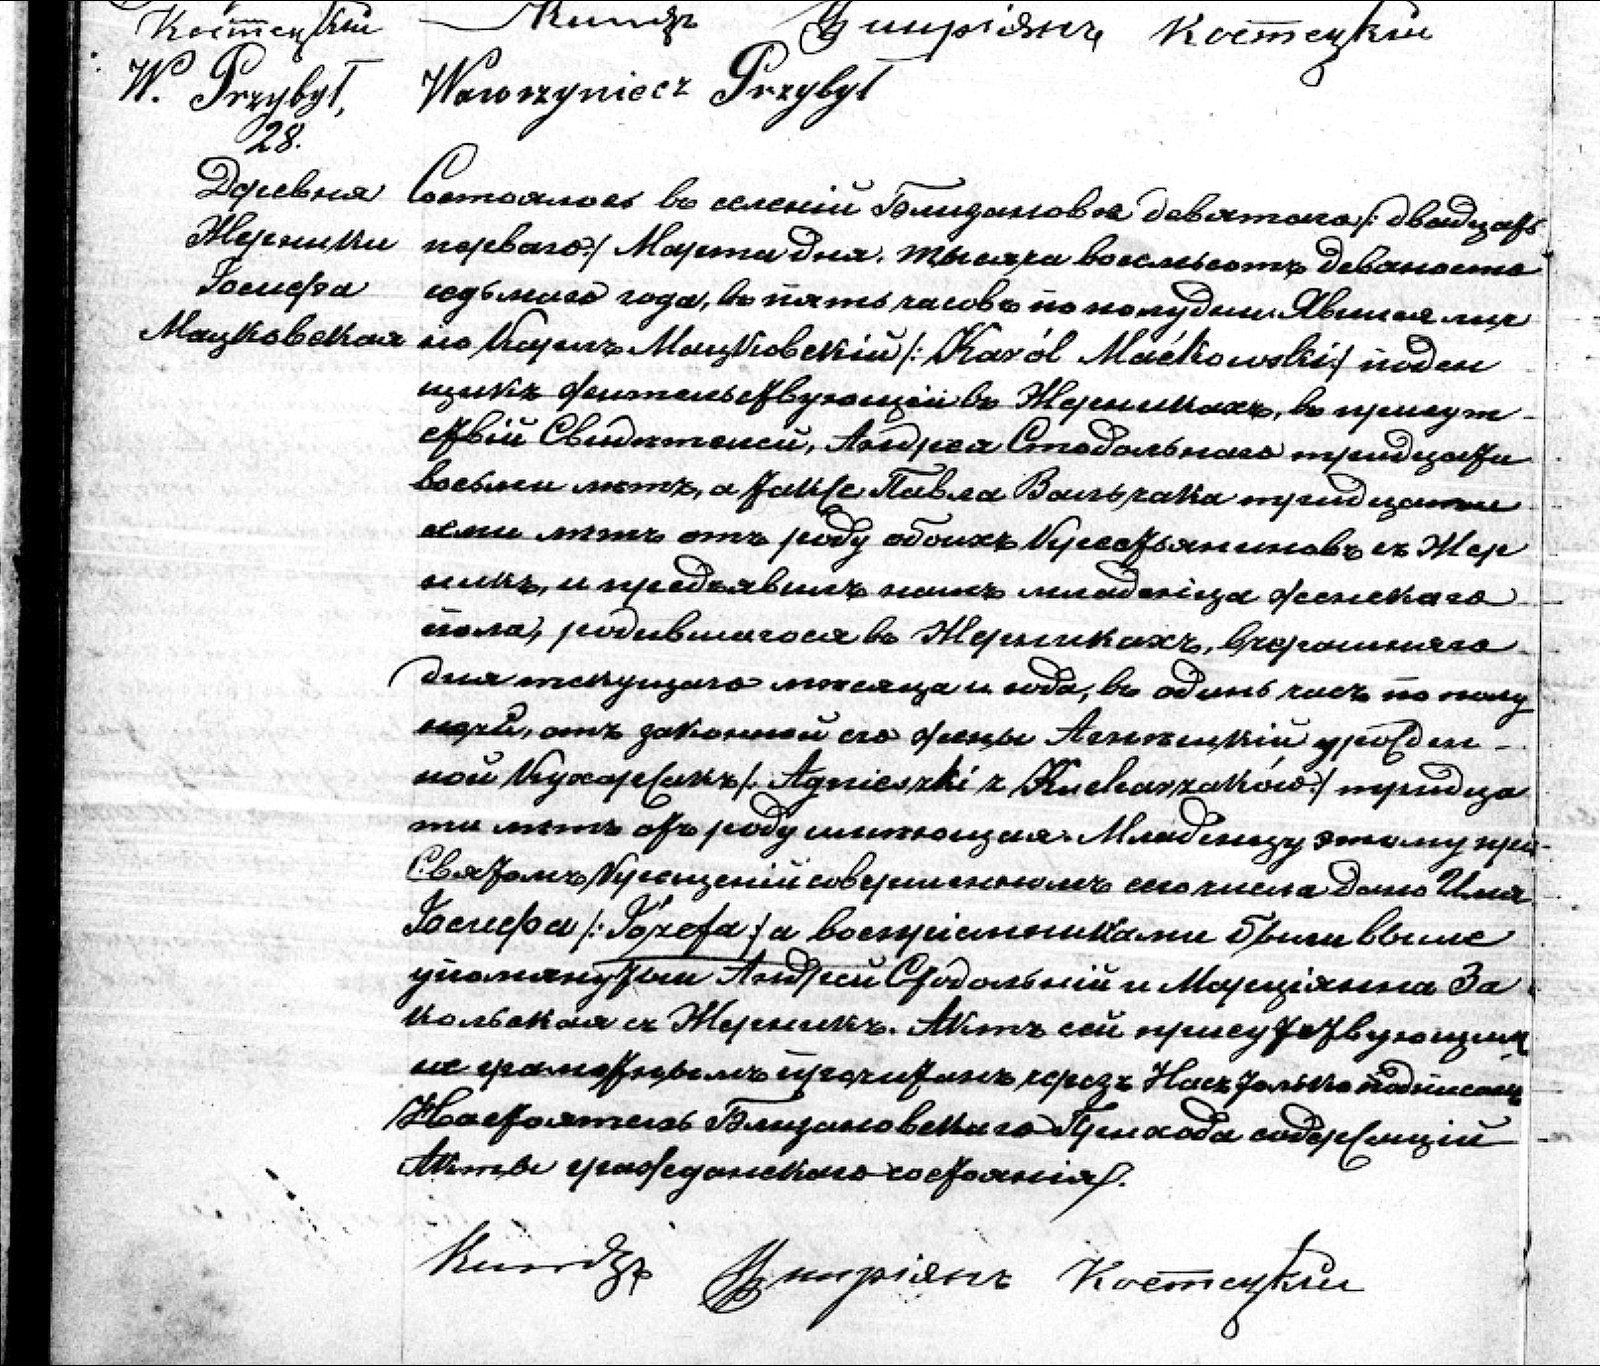 Костецкій Ксендзъ Цыпріянъ Костецкій
W. Przybył, Wawrzyniecz Przybył
28.
Деревня
Жерники
Іосифа
Мацковская
Состоялось въ селеніи Близановѣ девятаго /: двадцать
перваго :/ Марта дня, тысяча восемьсотъ девяносто
седьмаго года, въ пять часовъ по полудни. Явился лич
но Карлъ Мацковскій /: Karól Maćkowski :/ поден
щикъ жительствующій въ Жерникахъ, въ присут-
ствіи Свидѣтелей, Андрея Стодольнаго тридцати
восьми лѣтъ, а также Павла Вальчака тридцати
семи лѣтъ отъ роду обоихъ Крестьяниновъ съ Жер
никъ, и предъявилъ намъ младенца женскаго
пола, родившагося въ Жерникахъ, вчерашняго
дня текущаго мѣсяца и года, въ одинъ часъ по полу
ночи, отъ законной его жены Агнѣшки урожден-
ной Кухаржакъ /: Agnieszki z Kucharzaków :/ тридца
ти лѣтъ отъ роду имѣющая. Младенцу этому при
Святомъ Крещеніи совершенномъ сего числа дано Имя
Іосифа /: Józefa :/ а воспріемниками были выше
упомянутыи Андрей Стодольній и Марціянна За
кольская съ Жерникъ. Актъ сей присутствующимъ
не грамотнымъ прочитанъ черезъ Насъ только подписанъ
Настоятель Близановскаго Прихода содержащій
Акты гражданскаго состоянія.
Ксендзъ Цыпріянъ Костецкій